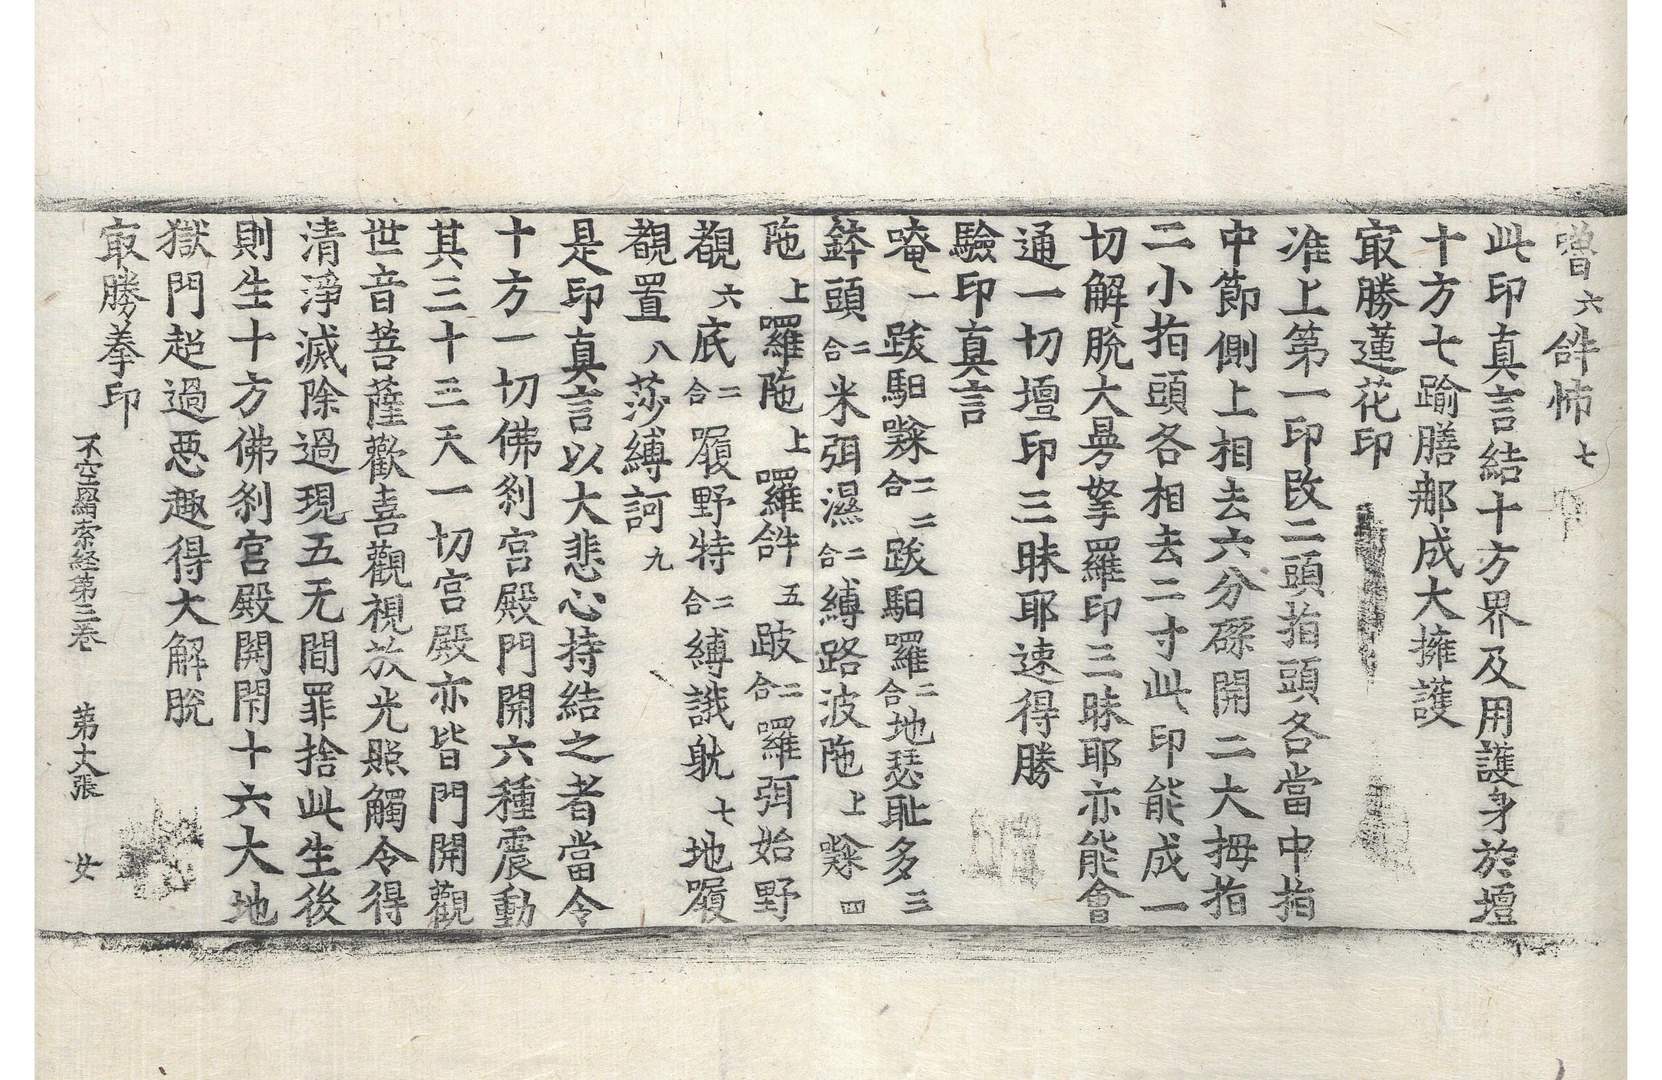 噌六𤙖怖七
此印真言結十方界及用護身於壇
十方七踰膳那成大擁護
㝡勝蓮花印
准上第一印改二頭指頭各當中指
中節側上相去六分磔開二大拇指
二小指頭各相去二寸此印能成一
切解脫大曼拏羅印三昧耶亦能會
通一切壇印三昧耶速得勝
驗印真言
唵一跋馹㘑二合二跋馹羅二合地瑟恥多三
鉢頭二合米弭濕二合縛路波陁上㘑四
陁上羅陁上羅𤙖五跛二合羅弭始野
覩六底二合履野特二合縛誐躭七地履
覩置八莎縛訶九
是印真言以大悲心持結之者當令
十方一切佛剎宮殿門開六種震動
其三十三天一切宮殿亦皆門開觀
世音菩薩歡喜觀視放光照觸令得
清淨滅除過現五无間罪捨此生後
則生十方佛剎宮殿開開十六大地
獄門超過惡趣得大解脫
㝡勝拳印
不空羂索経第三卷 第丈張 女